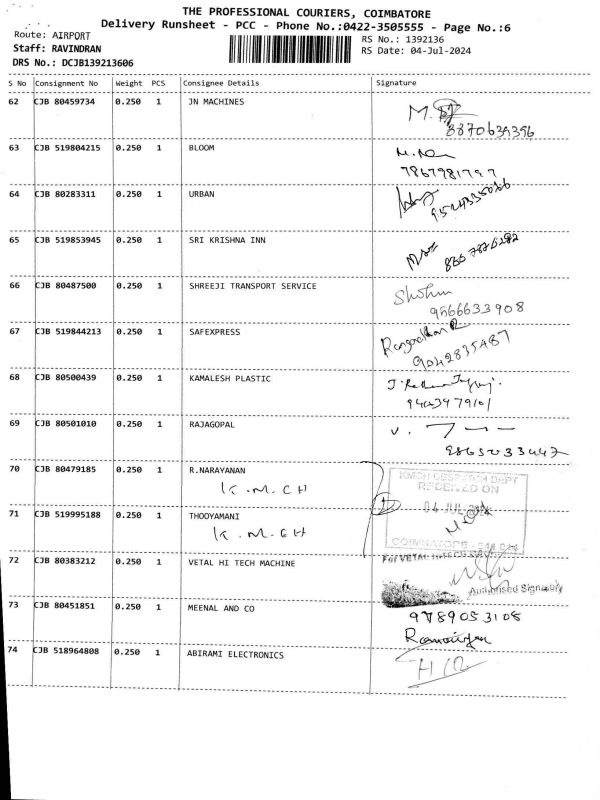 THE PROFESSIONAL COURIERS, COIMBATORE
Delivery Runsheet - PCC - Phone No.:0422-3505555 - Page No.:6
Route: AIRPORT
RS No.: 1392136
Staff: RAVINDRAN
RS Date: 04-Jul-2024
DRS No.: DCJB139213606
S No Consignment No Weight PCS Consignee Details Signature
62 CJB 80459734 0.250 1 JN MACHINES
8870634396
63 CJB 519804215 0.250 1 BLOOM
7867981797
64 CJB 80283311 0.250 1 URBAN
65 CJB 519853945 0.250 1 SRI KRISHNA INN
66 CJB 80487500 0.250 1 SHREEJI TRANSPORT SERVICE
9566633908
67 CJB 519844213 0.250 1 SAFEXPRESS
9042835487
68 CJB 80500439 0.250 1 KAMALESH PLASTIC
69 CJB 80501010 0.250 1 RAJAGOPAL
70 CJB 80479185 0.250 1 R.NARAYANAN
K.M.CH
KMCH DESPATCH DEPT
RECEIVED ON
71 CJB 519995188 0.250 1 THOOYAMANI
04 JUL 2024
K.M.CH
COIMBATORE - 641 014
72 CJB 80383212 0.250 1 VETAL HI TECH MACHINE
For VETAL
Authorised Signatory
73 CJB 80451851 0.250 1 MEENAL AND CO
9789053108
74 CJB 518964808 0.250 1 ABIRAMI ELECTRONICS